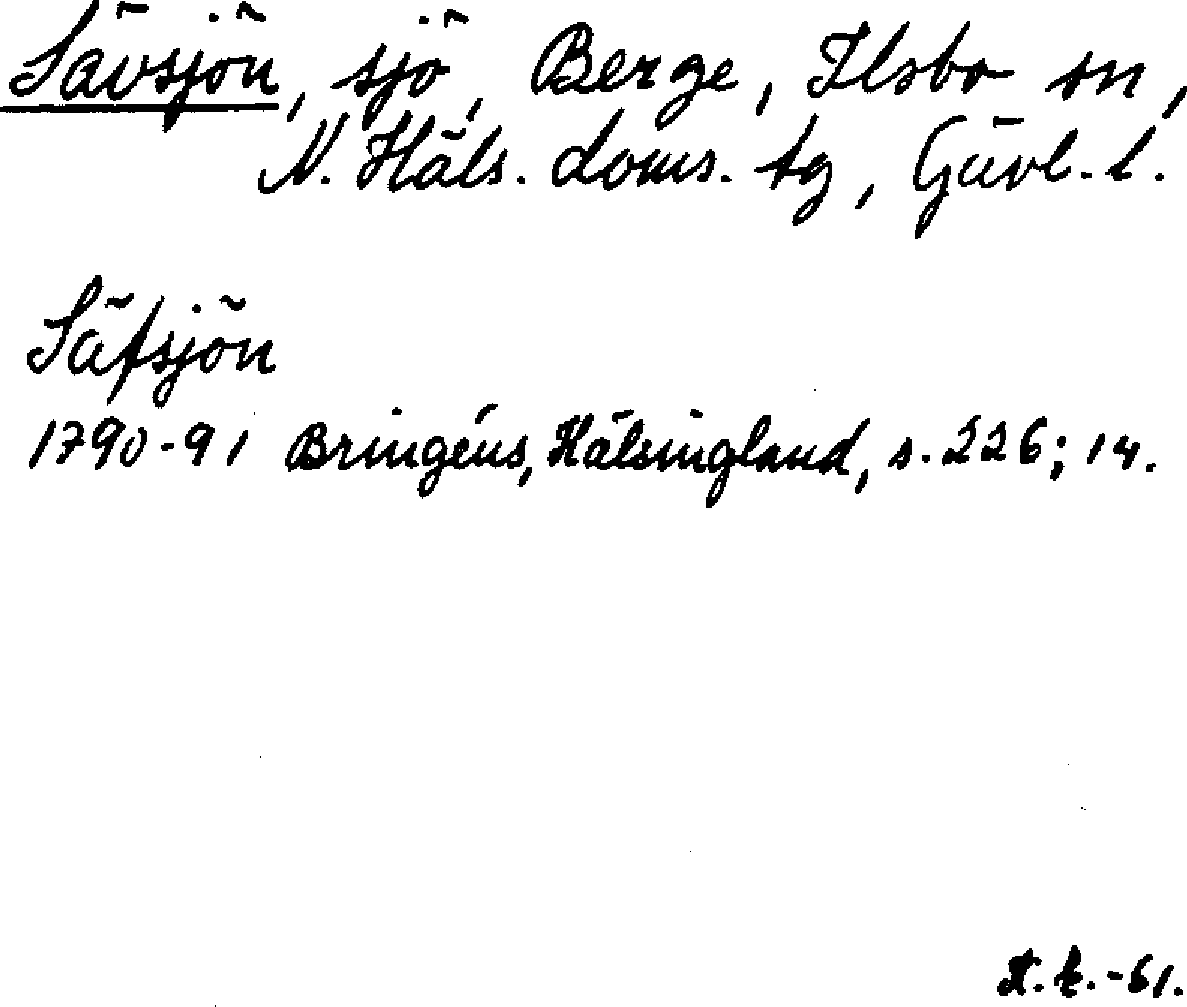 Sävsjön, sjö, Berge, Ilsbo sn,
N. Häls. doms. tg, Gävl. l.
Säfsjön
1790-91 Bringéus, Hälsingland, s. 226; 14.
-61.